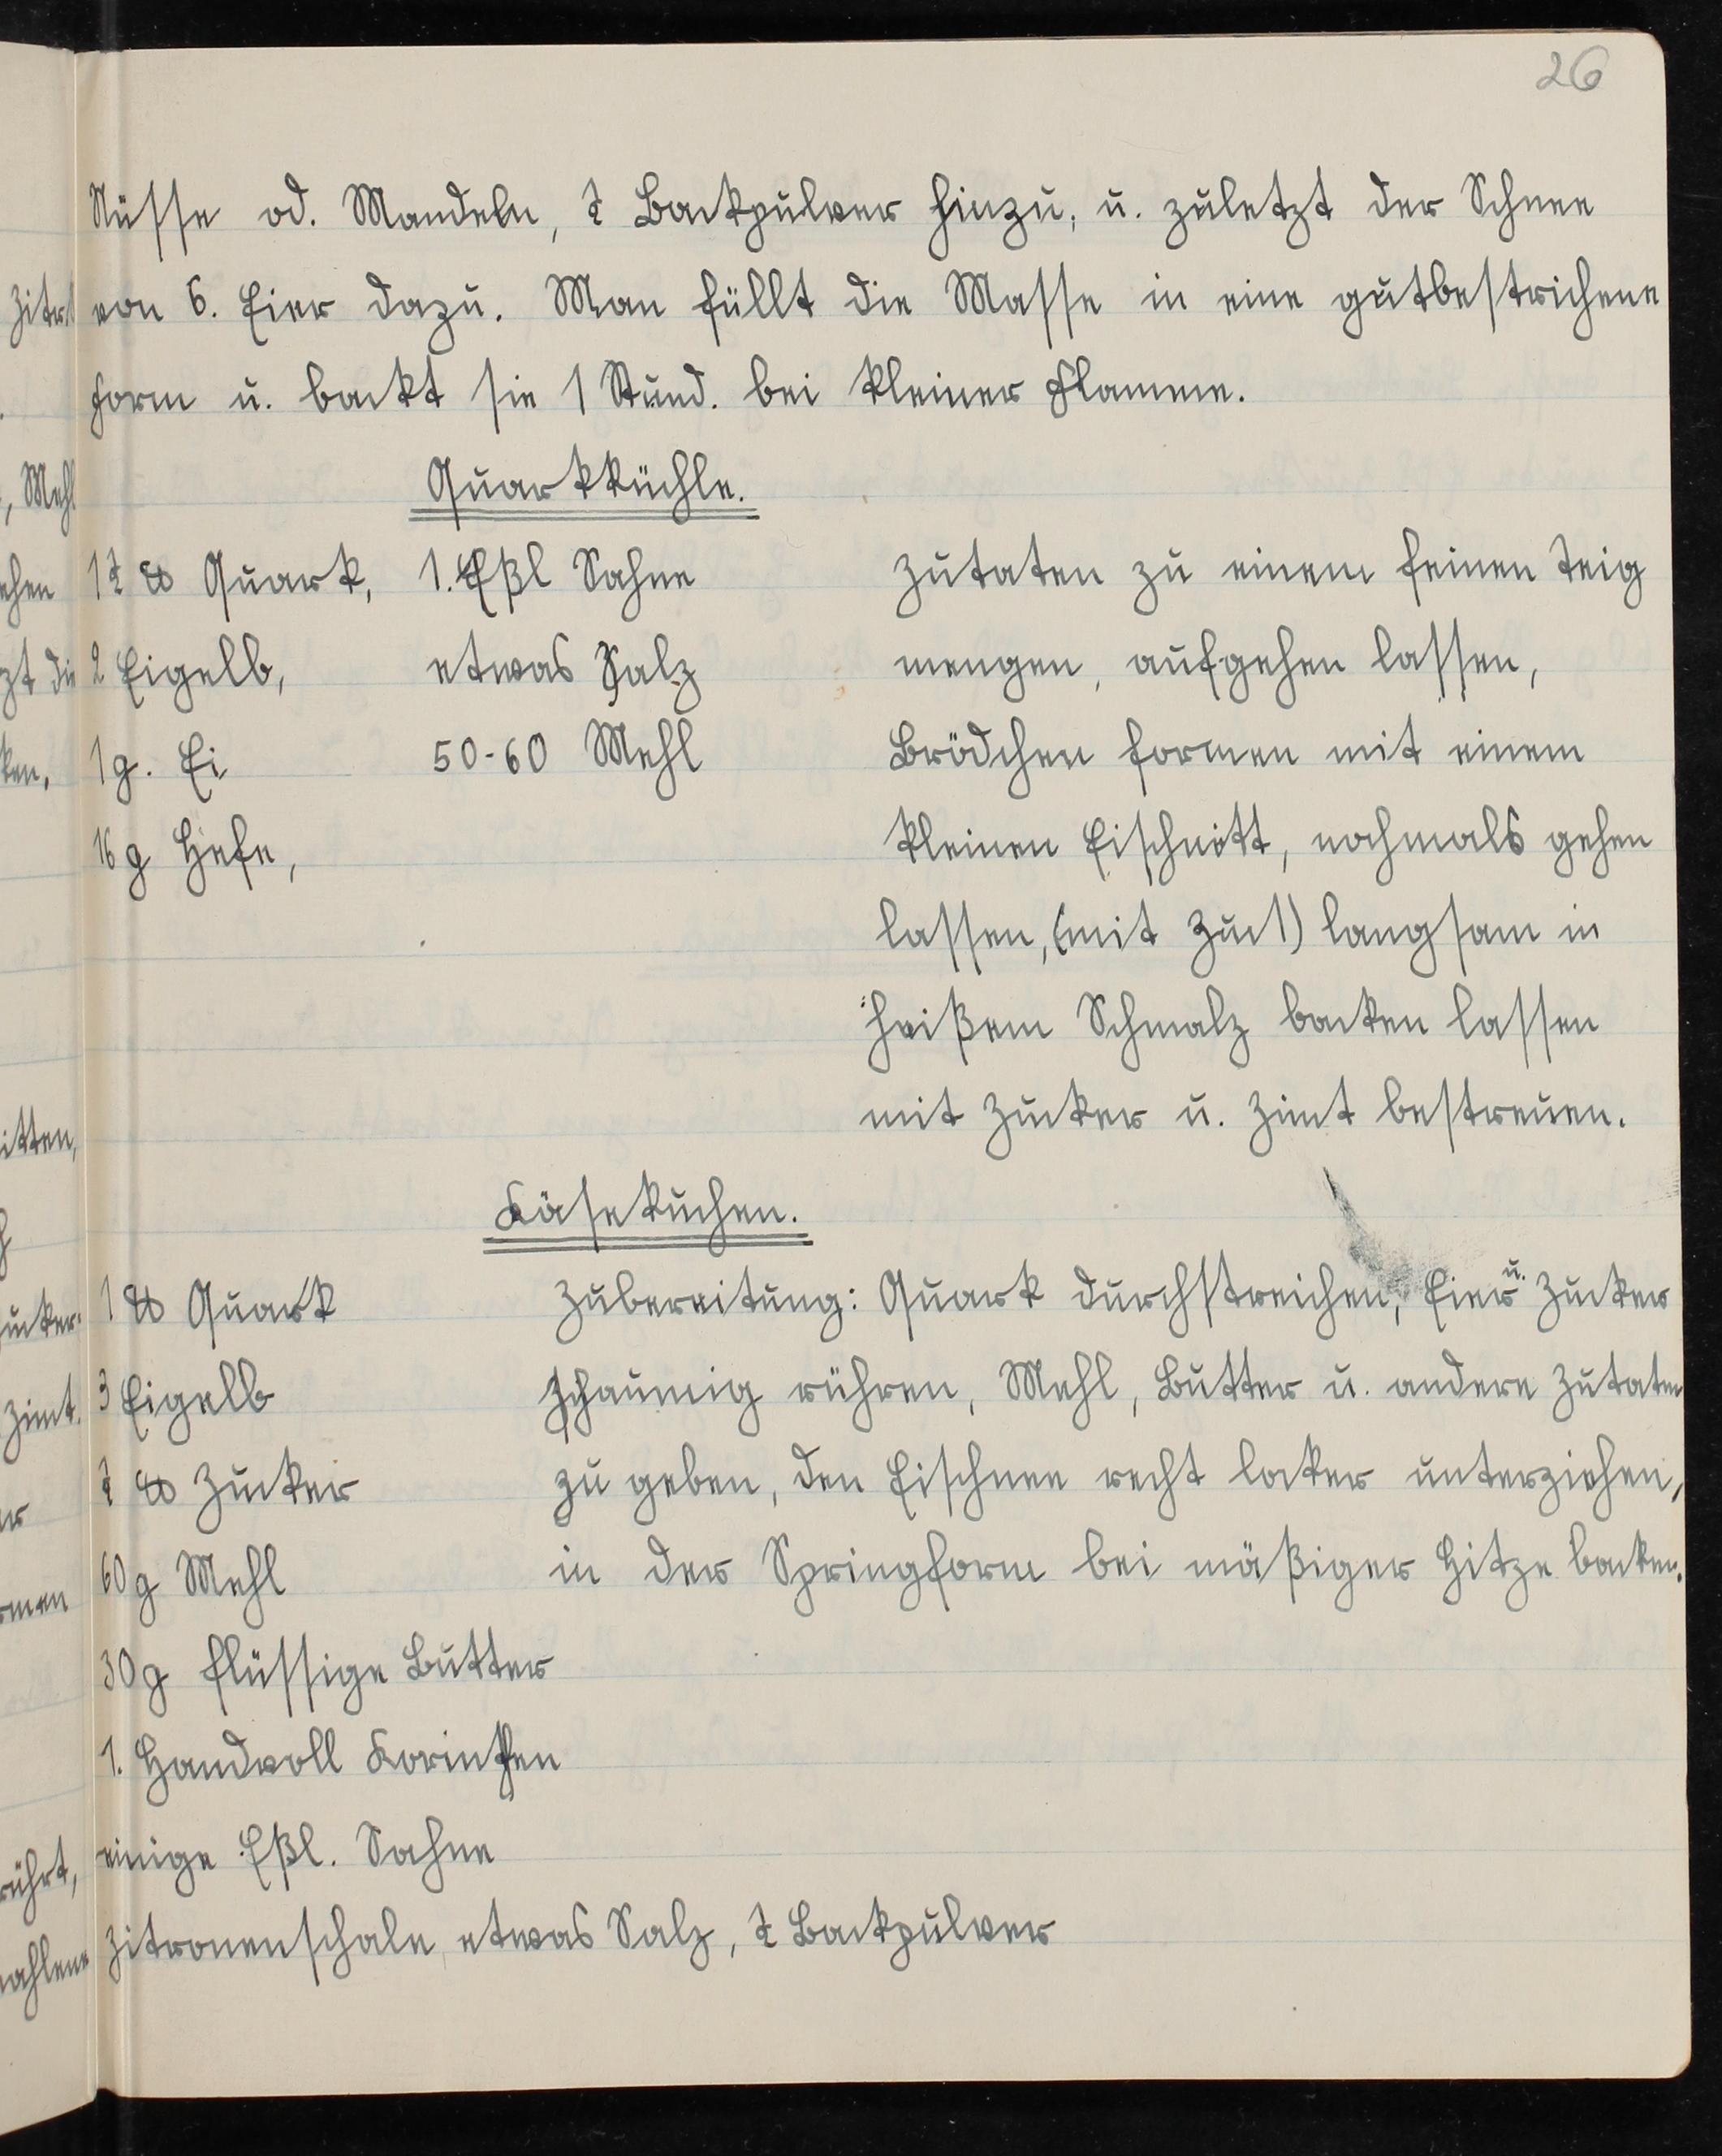 26
Nüsse od. Mandeln, ½ Backpulver hinzu, u. zuletzt der Schnee
von 6. Eier dazu. Man füllt die Masse in eine gutbestrichene
Form u. backt sie 1 Stund. bei kleiner Flamme.
Quarkküchle.
1½ ℔ Quark, 1. Eßl Sahne
2 Eigelb, etwas Salz
1 g. Ei 50-60 Mehl
16 g Hefe,
Zutaten zu einem feinen Teig
mengen, aufgehen lassen,
Brödchen formen mit einem
kleinen Eischnitt, nochmals gehen
lassen, (mit Zuct) langsam in
heißem Schmalz backen lassen
mit Zucker u. Zimt bestreuen.
Käsekuchen.
1 ℔ Quark
3 Eigelb
½ ℔ Zucker
60 g Mehl
30 g flüssige Butter
1. Handvoll Korinthen
einige Eßl. Sahne
Zitronenschale, etwas Salz, ½ Backpulver
Zubereitung: Quark durchstreichen, Eier u. Zucker
schaumig rühren, Mehl, Butter u. andere Zutaten
zu geben, den Eischnee recht locker unterziehen,
in der Springform bei mäßiger Hitze backen.